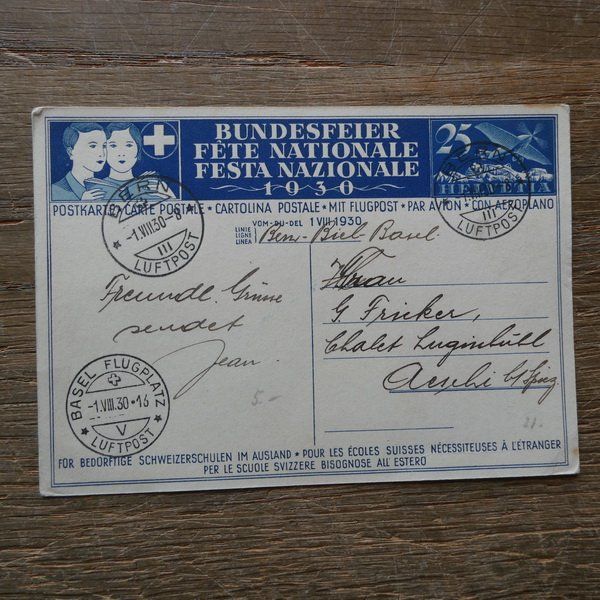 BUNDESFEIER
FÊTE NATIONALE
FESTA NAZIONALE
1930
25
HELVETIA
POSTKARTE • CARTE POSTALE • CARTOLINA POSTALE • MIT FLUGPOST • PAR AVION • CON AEROPLANO
VOM • DU • DEL 1 VIII 1930
LINIE
LIGNE
LINEA
Bern - Biel Basel
BERN
-1.VIII.30-8
III
LUFTPOST
BERN
III
LUFTPOST
Freundl. Grüsse
sendet
Jean.
Frau
G. Fricker,
Chalet Luginbühl
Aeschi b/Spiez
BASEL FLUGPLATZ
-1.VIII.30•16
V
LUFTPOST
5.-
FÜR BEDÜRFTIGE SCHWEIZERSCHULEN IM AUSLAND • POUR LES ÉCOLES SUISSES NÉCESSITEUSES À L'ÉTRANGER
PER LE SCUOLE SVIZZERE BISOGNOSE ALL'ESTERO